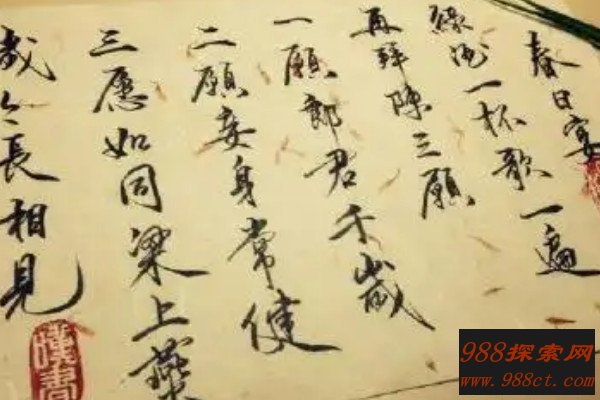 春日宴
綠酒一杯歌一遍
再拜陳三願
一願郎君千歲
二願妾身常健
三愿如同梁上燕
歲々長相見
988探索网
www.988ct.com